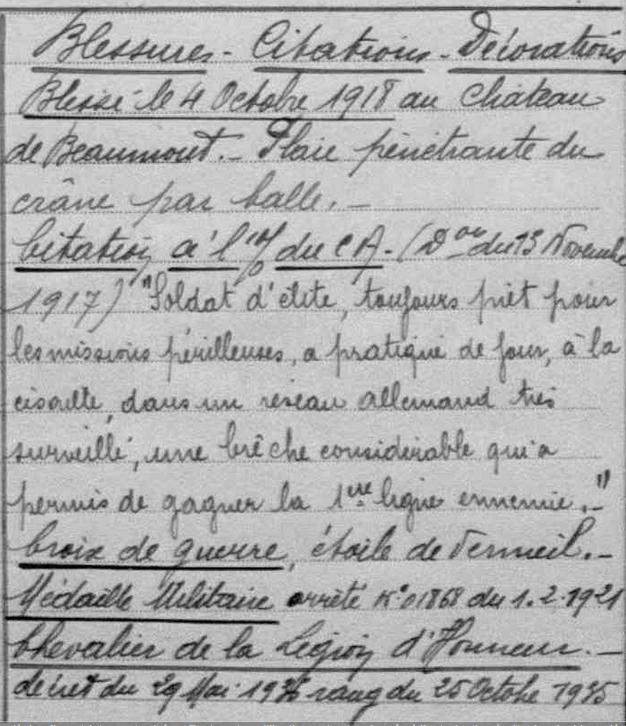 Blessures - Citations - Décorations
Blessé le 4 Octobre 1918 au Château
de Beaumont. - Plaie pénétrante du
crâne par balle. -
Citation à l' du C A - ( du 13 Novembre
1917) "Soldat d'élite, toujours prêt pour
les missions périlleuses, a pratiqué de jour, à la
cisaille, dans un réseau allemand très
surveillé, une brêche considérable qui a
permis de gagner la 1ere ligne ennemie. - "
Croix de guerre, étoile de Vermeil. -
Médaille Militaire arrêté 1868 du 1.2.1921
Chevalier de la Légion d'Honneur. -
décret du 29 Mai rang du 25 Octobre 1935